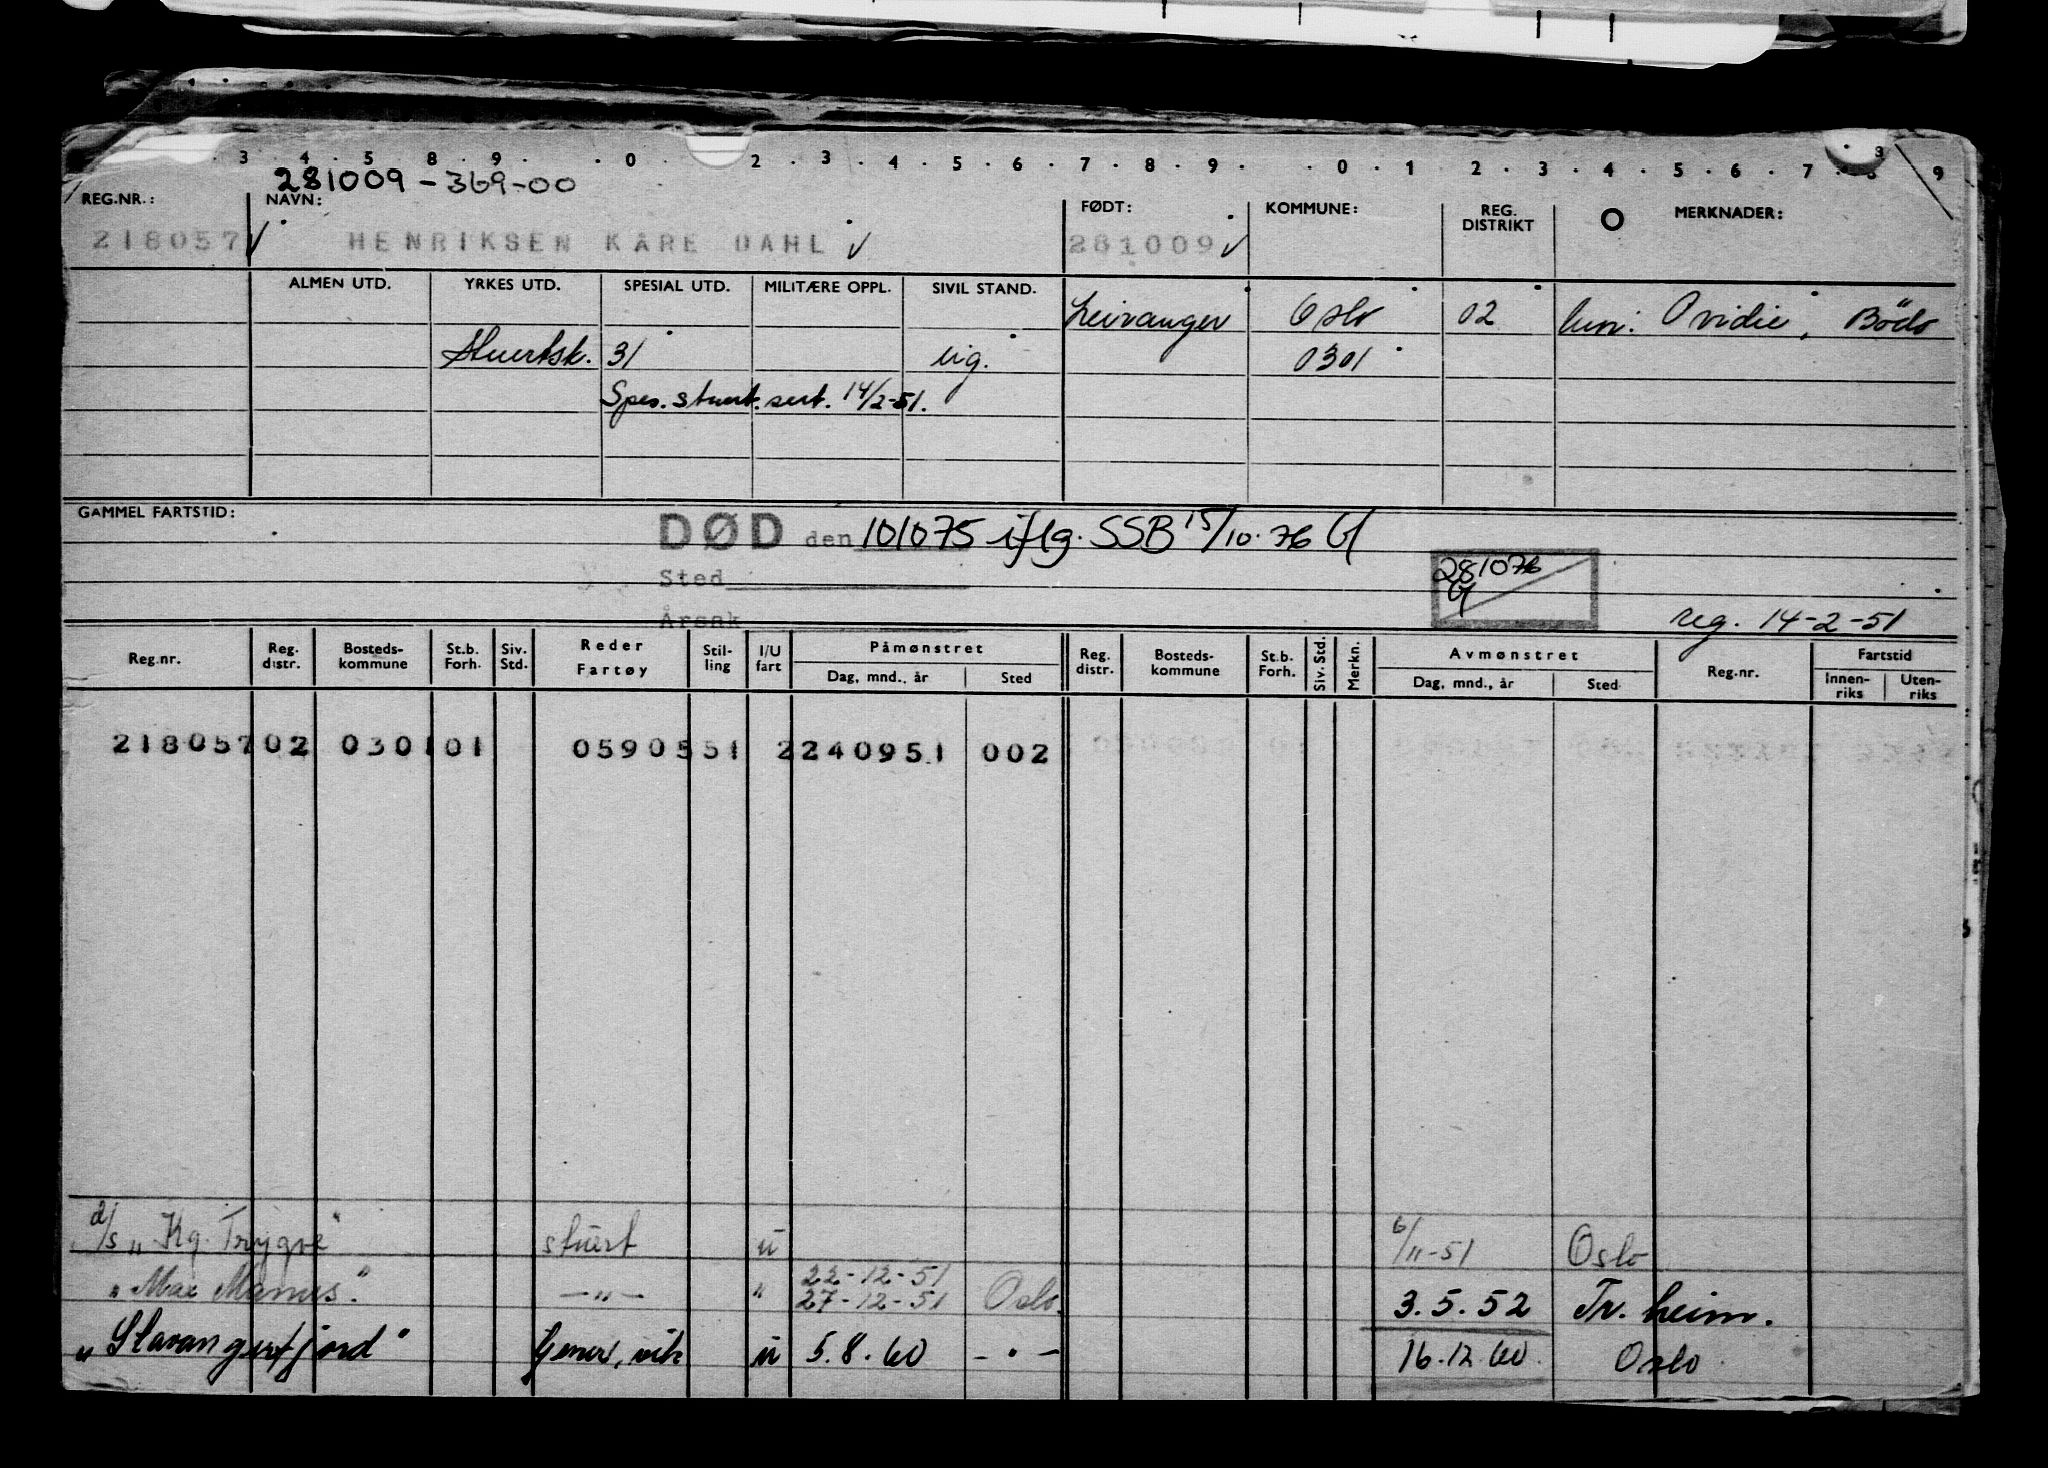 3 . 4 . 5 8 . 9 . . 0 2 . 3 . 4 . 5 . 6 . 7 . 8 . 9 . . 0 . 1 . 2 . 3 . 4 . 5 . 6 . 7 . 8 9
281009-369-00
REG.NR.: NAVN: FØDT: KOMMUNE: REG. DISTRIKT MERKNADER:
218057 HENRIKSEN KÅRE DAHL 281009
ALMEN UTD. YRKES UTD. SPESIAL UTD. MILITÆRE OPPL. SIVIL STAND.
Leiranger Oslo 02 Ovidie, Bodö
Stuertsk. 31 ug. 0301
Spes. stuert. sert. 14/2-51.
GAMMEL FARTSTID:
DØD den 101075 iflg. SSB 15/10.76
Sted 281076
Årsak
reg. 14-2-51
Reg.nr. Reg. distr. Bosteds-kommune St.b. Forh. Siv. Std. Reder Fartøy Stil-ling I/U fart Påmønstret Dag, mnd., år Sted Reg. distr. Bosteds-kommune St.b. Forh. Siv. Std. Merkn. Avmønstret Dag, mnd., år Sted Reg.nr. Fartstid Innen-riks Uten-riks
218057 02 0301 01 0590551 2240951 002
d/s "Kg. Trygve" stuert u 6/11-51 Oslo
"Max Manus." -"- " 22-12-51
27-12-51 Oslo. 3.5.52 Tr.heim.
"Stavangerfjord" u 5.8.60 -"- 16.12.60. Oslo